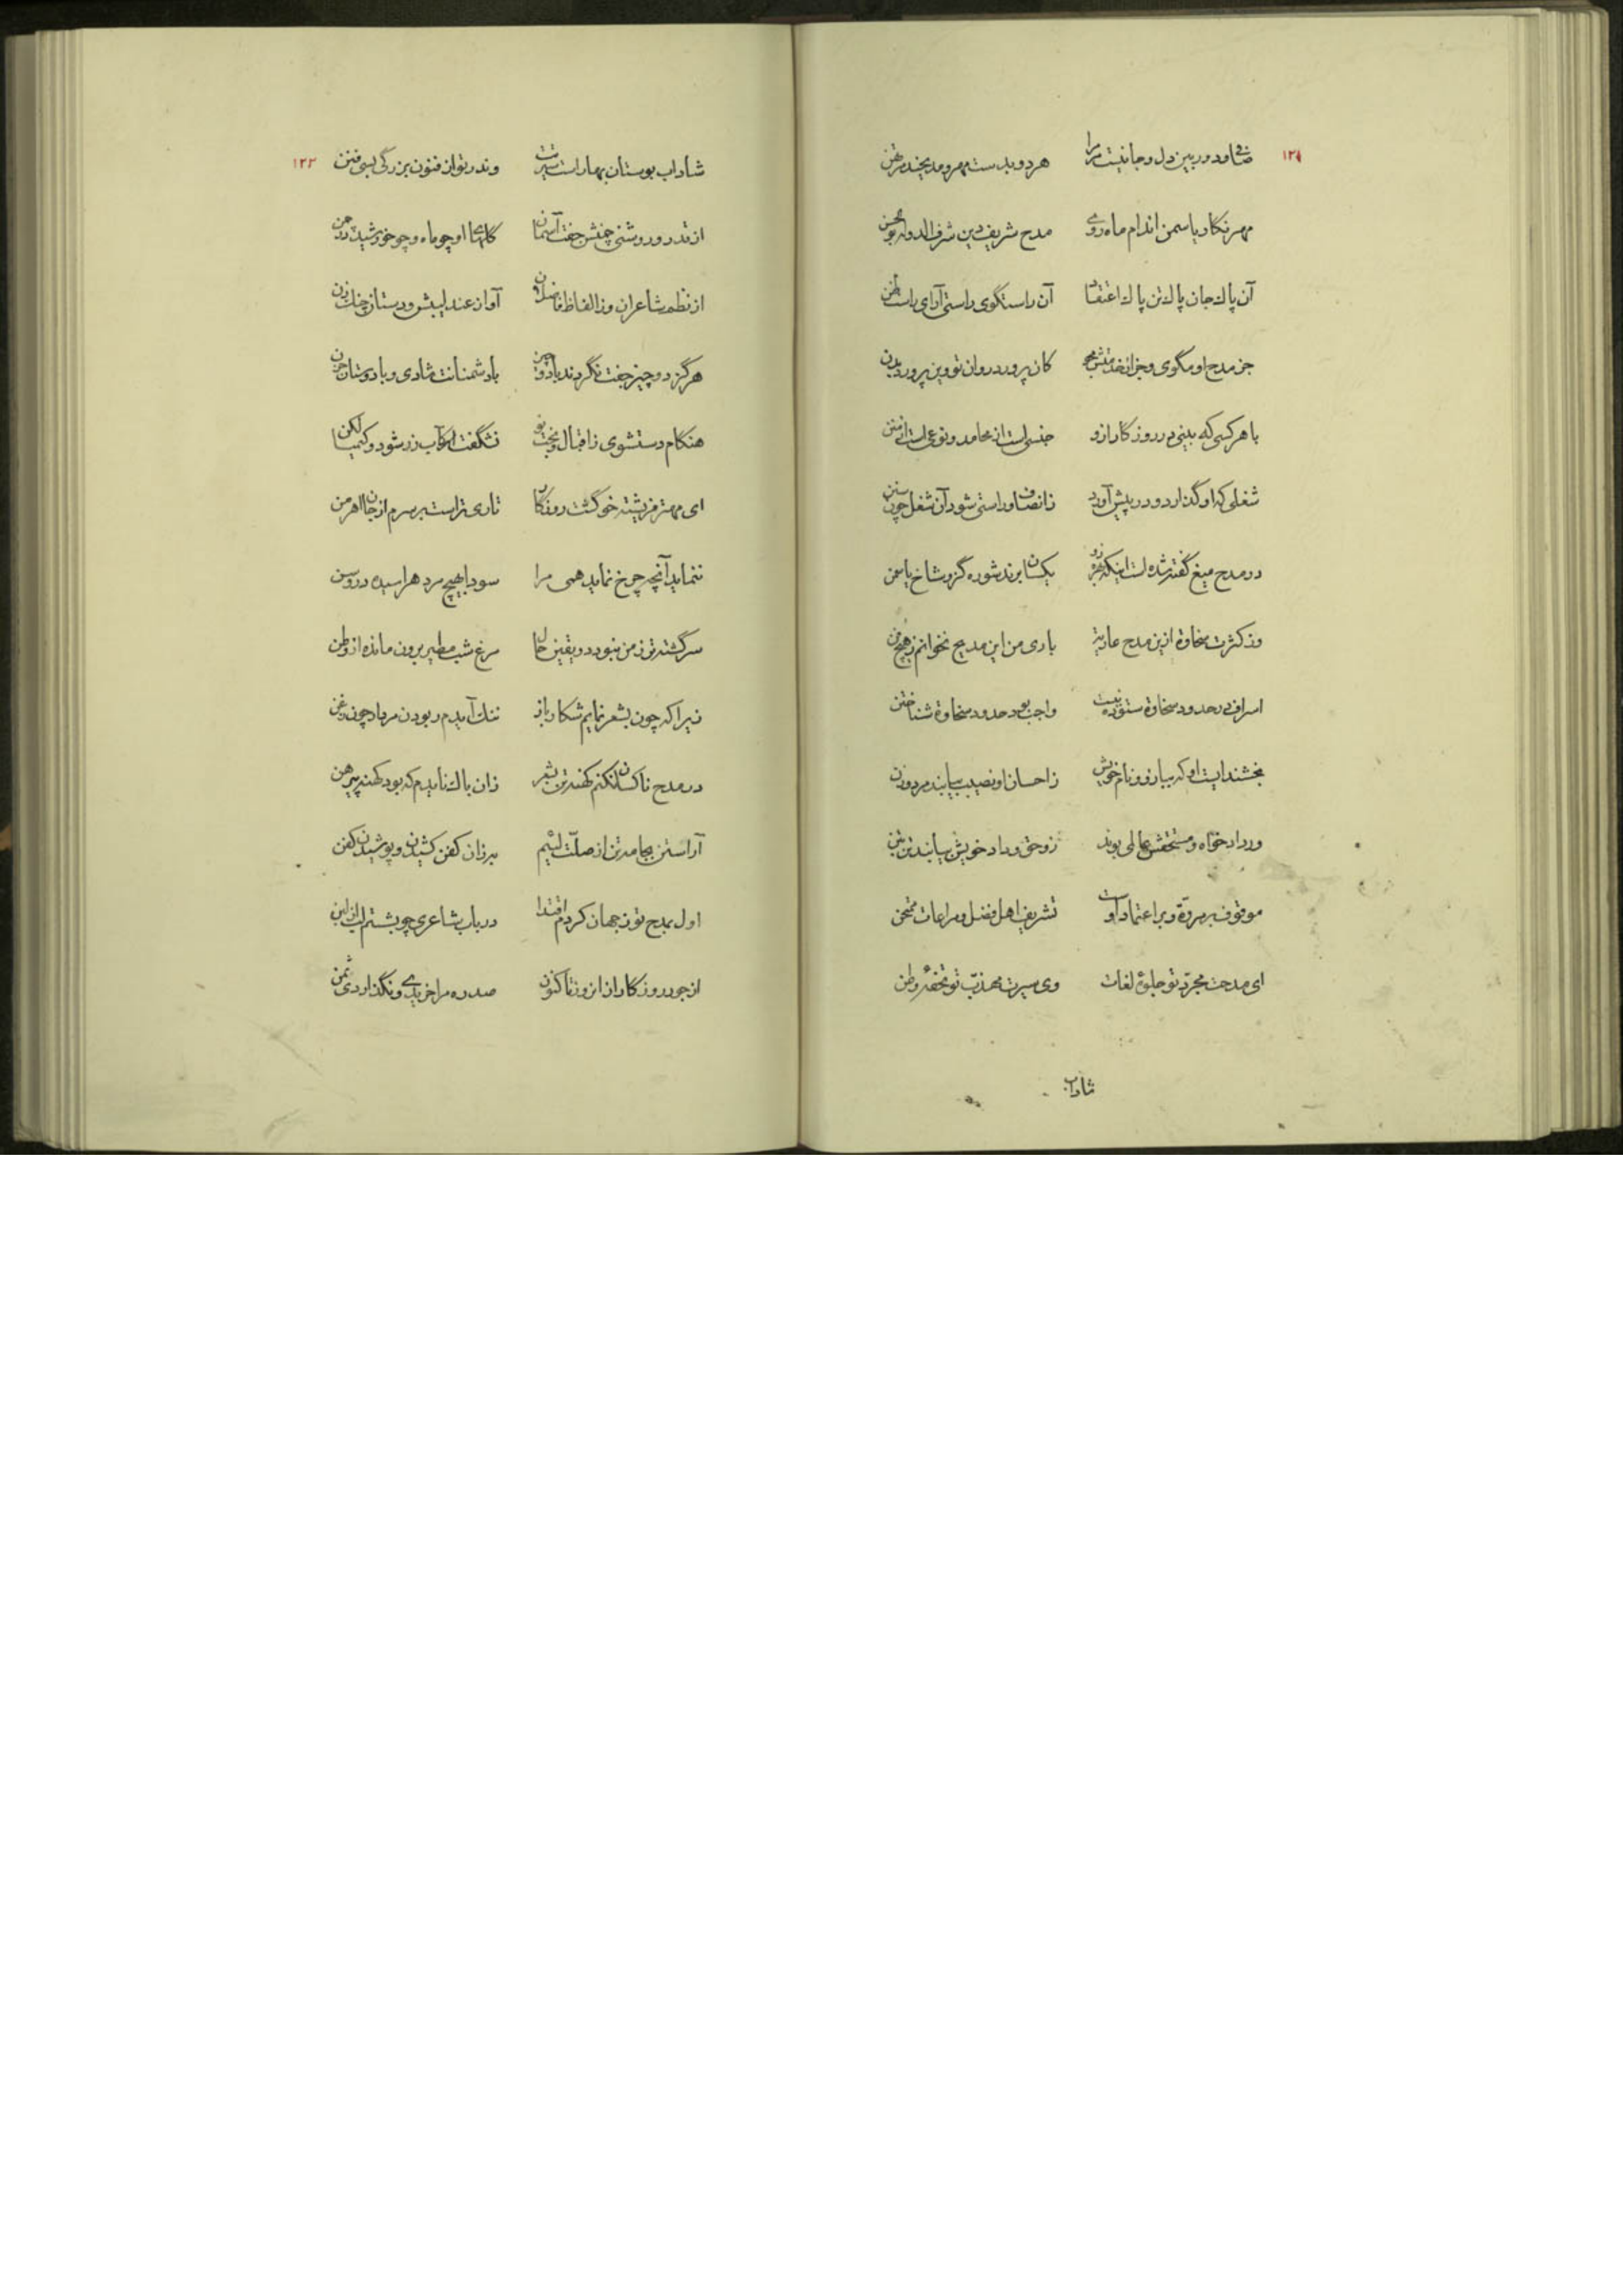 ۱۲۱
صافی و دوربین دل و جانیست مر مرا هر دو بدست مهر و مدیحند مرتهن
مهر نگار یاسمن اندام ماه روی مدح شریف دین شرف الدوله بو الحسن
آن پاک جان پاک تن پاک اعتقاد آن راستگوی راستی آرای راست ظن
جز مدح او مگوی و جز از خدمتش مجوی کان پرورد روان تو وین پرورد بدن
با هر کسی که بینی در روزگار ازو جنسی است از محامد و نوعی است از منن
شغلی که او گذارد و در پیش آورد ز انصاف و راستی شود آن شغل چون سنن
در مدح میغ گفته شده است اینکه بهره زو یکسان برند شوره گز و شاخ یاسمن
وز کثرت سخاوة ازین مدح عاریة باری من این مدیح نخوانم ز هیچ فن
اسراف در حدود سخاوة ستوده نیست واجب بود حدود سخاوة شناختن
بخشنده ایست او که بیارزو و نام خویش ز احسان او نصیب بیابند مرد و زن
ور دادخواه و مستحقش عالمی بوند زو حق و داد خویش بیابند تن بتن
موقوف بر مروّة و بر اعتماد اوست تشریف اهل فضل و مراعات ممتحن
ای مدحت مجرّد تو جلوهٔ لغات وی سیرت مهذّب تو تحفهٔ وطن
شاداب
۱۲۲
شاداب بوستان بهار است سیرتت وندر تو از فنون بزرگی بسی فنن
از قدر و روشنی چمنش جفت آسمان گلهای او چو ماه و چو خورشید در چمن
از نظم شاعران وز الفاظ فاضلان آواز عندلیبش و دستان چنگ زن
هرگز دو چیز جفت نگردند با دو چیز با دشمنانت شادی و با دوستان حزن
هنگام دستشوی ز اقبال و بخت تو نشگفت اگر آب زر شود و کیمیا لگن
ای مهتر فریشته خو گشت روزگار تاری تر است بر سرم از جان اهرمن
ننماید آنچه چرخ نماید همی مرا سودابهیچ مرد هراسیده در وسن
سرگشته تر ز من نبود در یقین حال مرغ شب مطیر برون مانده از وطن
زیرا که چون بشعر نمایم شکار باز ننگ آیدم ربودن مردار چون زغن
در مدح ناکسان نکنم کهنه تن بشعر زان باک نایدم که بود کهنه پیرهن
آراستن بجامه تن از صلّت لئیم به زان کفن کشیدن و پوشیدن کفن
اول بمدح تو ز جهان کردم اقتدا در باب شاعری چو بشستم لب از لبن
از جور روزگار از انروز تا کنون صد ره مرا خریدی و نگذاردی ثمن